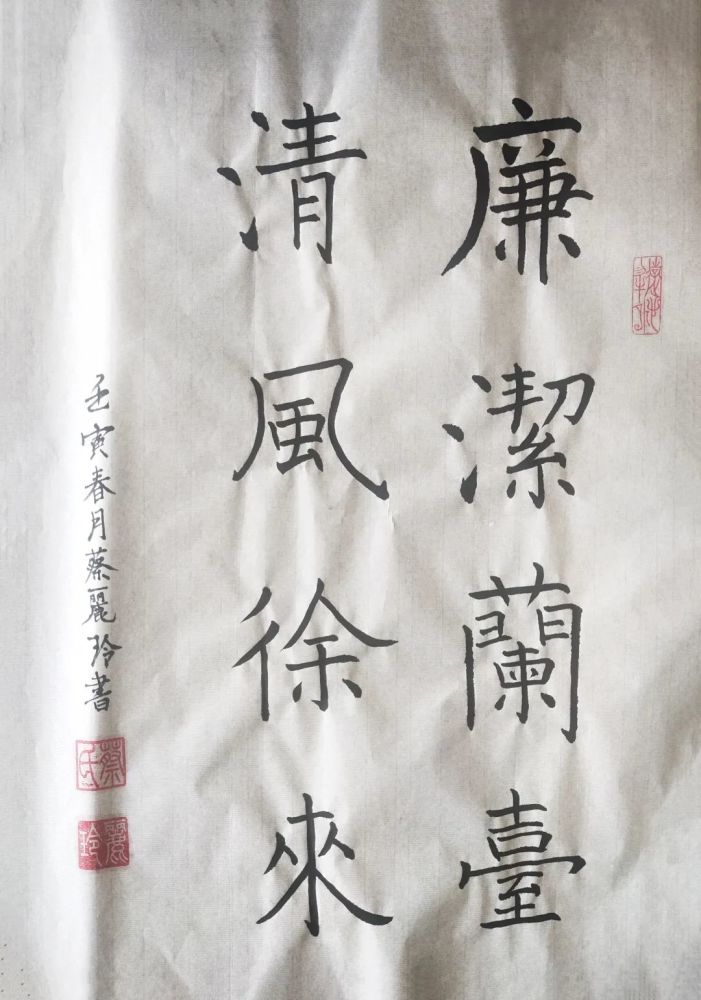 廉潔蘭臺
清風徐來
壬寅春月蔡麗玲書
蔡氏
麗玲